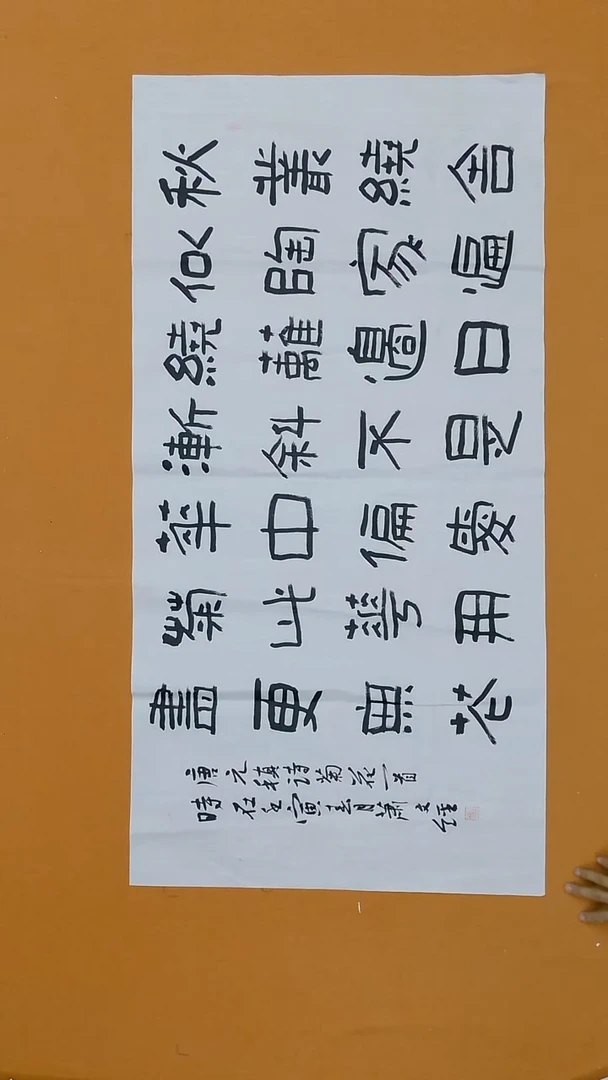 秋叢繞舍
似陶家遍
繞籬邊日
漸斜不是
華中偏愛
菊此華開
盡更無花
唐元稹詩菊花一首
時在壬寅春月蕭文